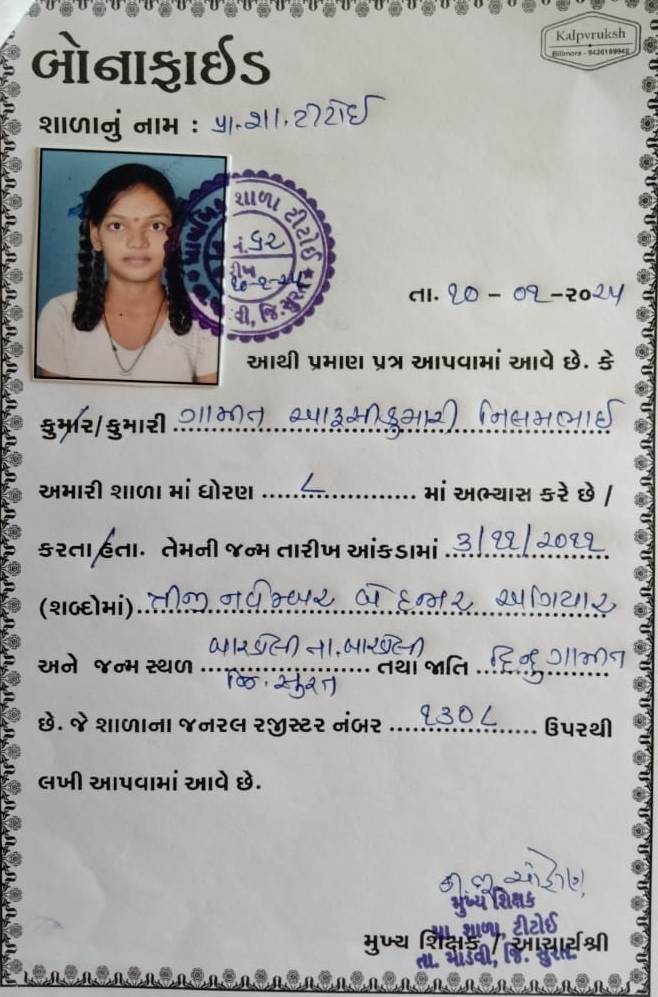 Kalpvruksh
Billimora - 9426189948
બોનાફાઈડ
શાળાનું નામ : પ્રા.શા. ટીટોઈ
શાળા ટીટોઈ
નં. ૬૨
૧૦-૧-૨૫
વી, જિ. સુરત
તા. ૧૦ - ૦૧ -૨૦૨૫
આથી પ્રમાણ પત્ર આપવામાં આવે છે. કે
કુમાર/કુમારી ગામીત આરૂસીકુમારી નિલમભાઈ
અમારી શાળા માં ધોરણ ૮ માં અભ્યાસ કરે છે /
કરતા હતા. તેમની જન્મ તારીખ આંકડામાં ૩/૧૧/૨૦૧૧
(શબ્દોમાં) ત્રીજી નવેમ્બર બે હજાર અગિયાર
અને જન્મ સ્થળ બારડોલી તા. બારડોલી જિ. સુરત તથા જાતિ હિન્દુ ગામીત
છે. જે શાળાના જનરલ રજીસ્ટર નંબર ૧૩૦૮ ઉપરથી
લખી આપવામાં આવે છે.
મુખ્ય શિક્ષક
પ્રા. શાળા, ટીટોઈ
તા. માંડવી, જિ. સુરત.
મુખ્ય શિક્ષક / આચાર્યશ્રી